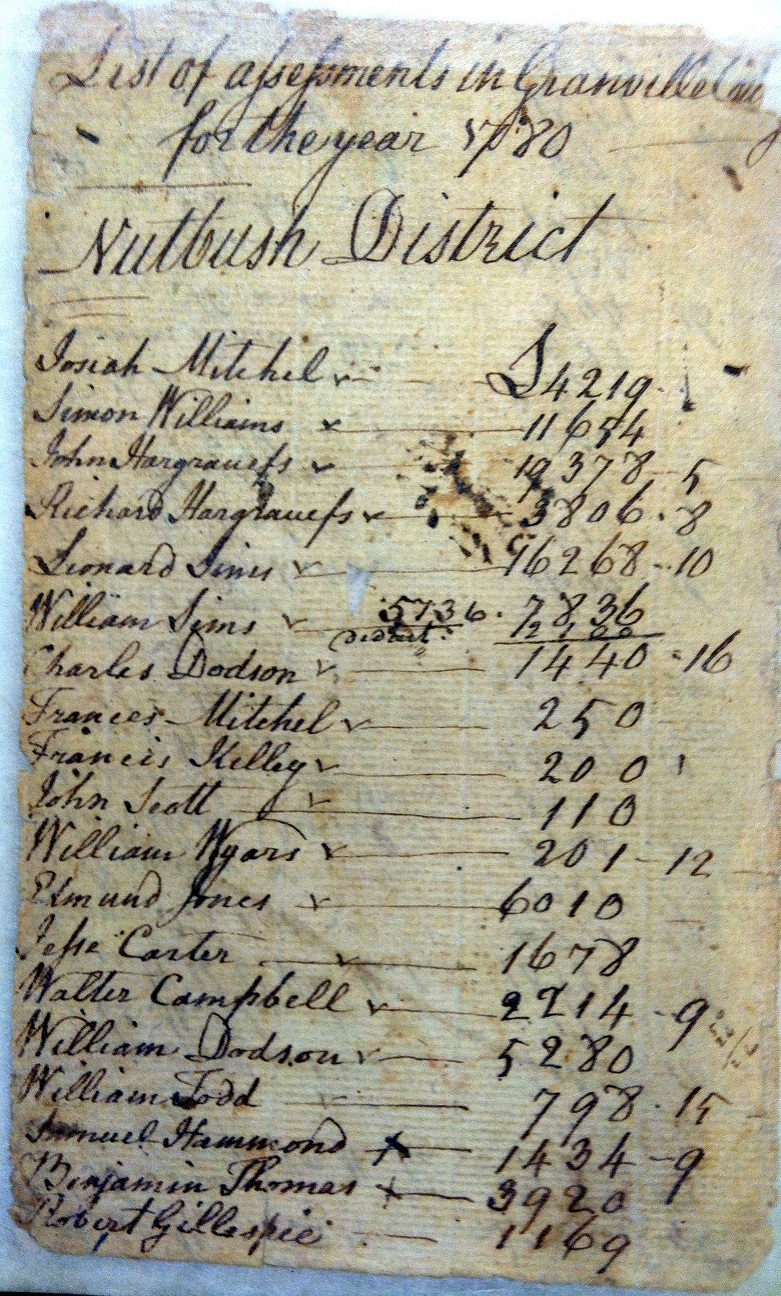 List of assessments in Granville
for the year 1780
Nutbush District
Josiah Mitchel £4219
Simon Williams 11654
John Hargravess 19378 - 5
Richard Hargravess 3806 - 8
Leonard Sims 16268 - 10
William Sims 5736 . 7836
deduct 2100
Charles Dodson 1440 - 16
Frances Mitchel 250
Francis Kelley 200
John Scott 110
William Wyars 201 - 12
Edmund Jones 6010
Jesse Carter 1678
Walter Campbell 2214 - 9
William Dodson 5280
William Todd 798 - 15
Samuel Hammond 1434 - 9
Benjamin Thomas 3920
Robert Gillespie 1169